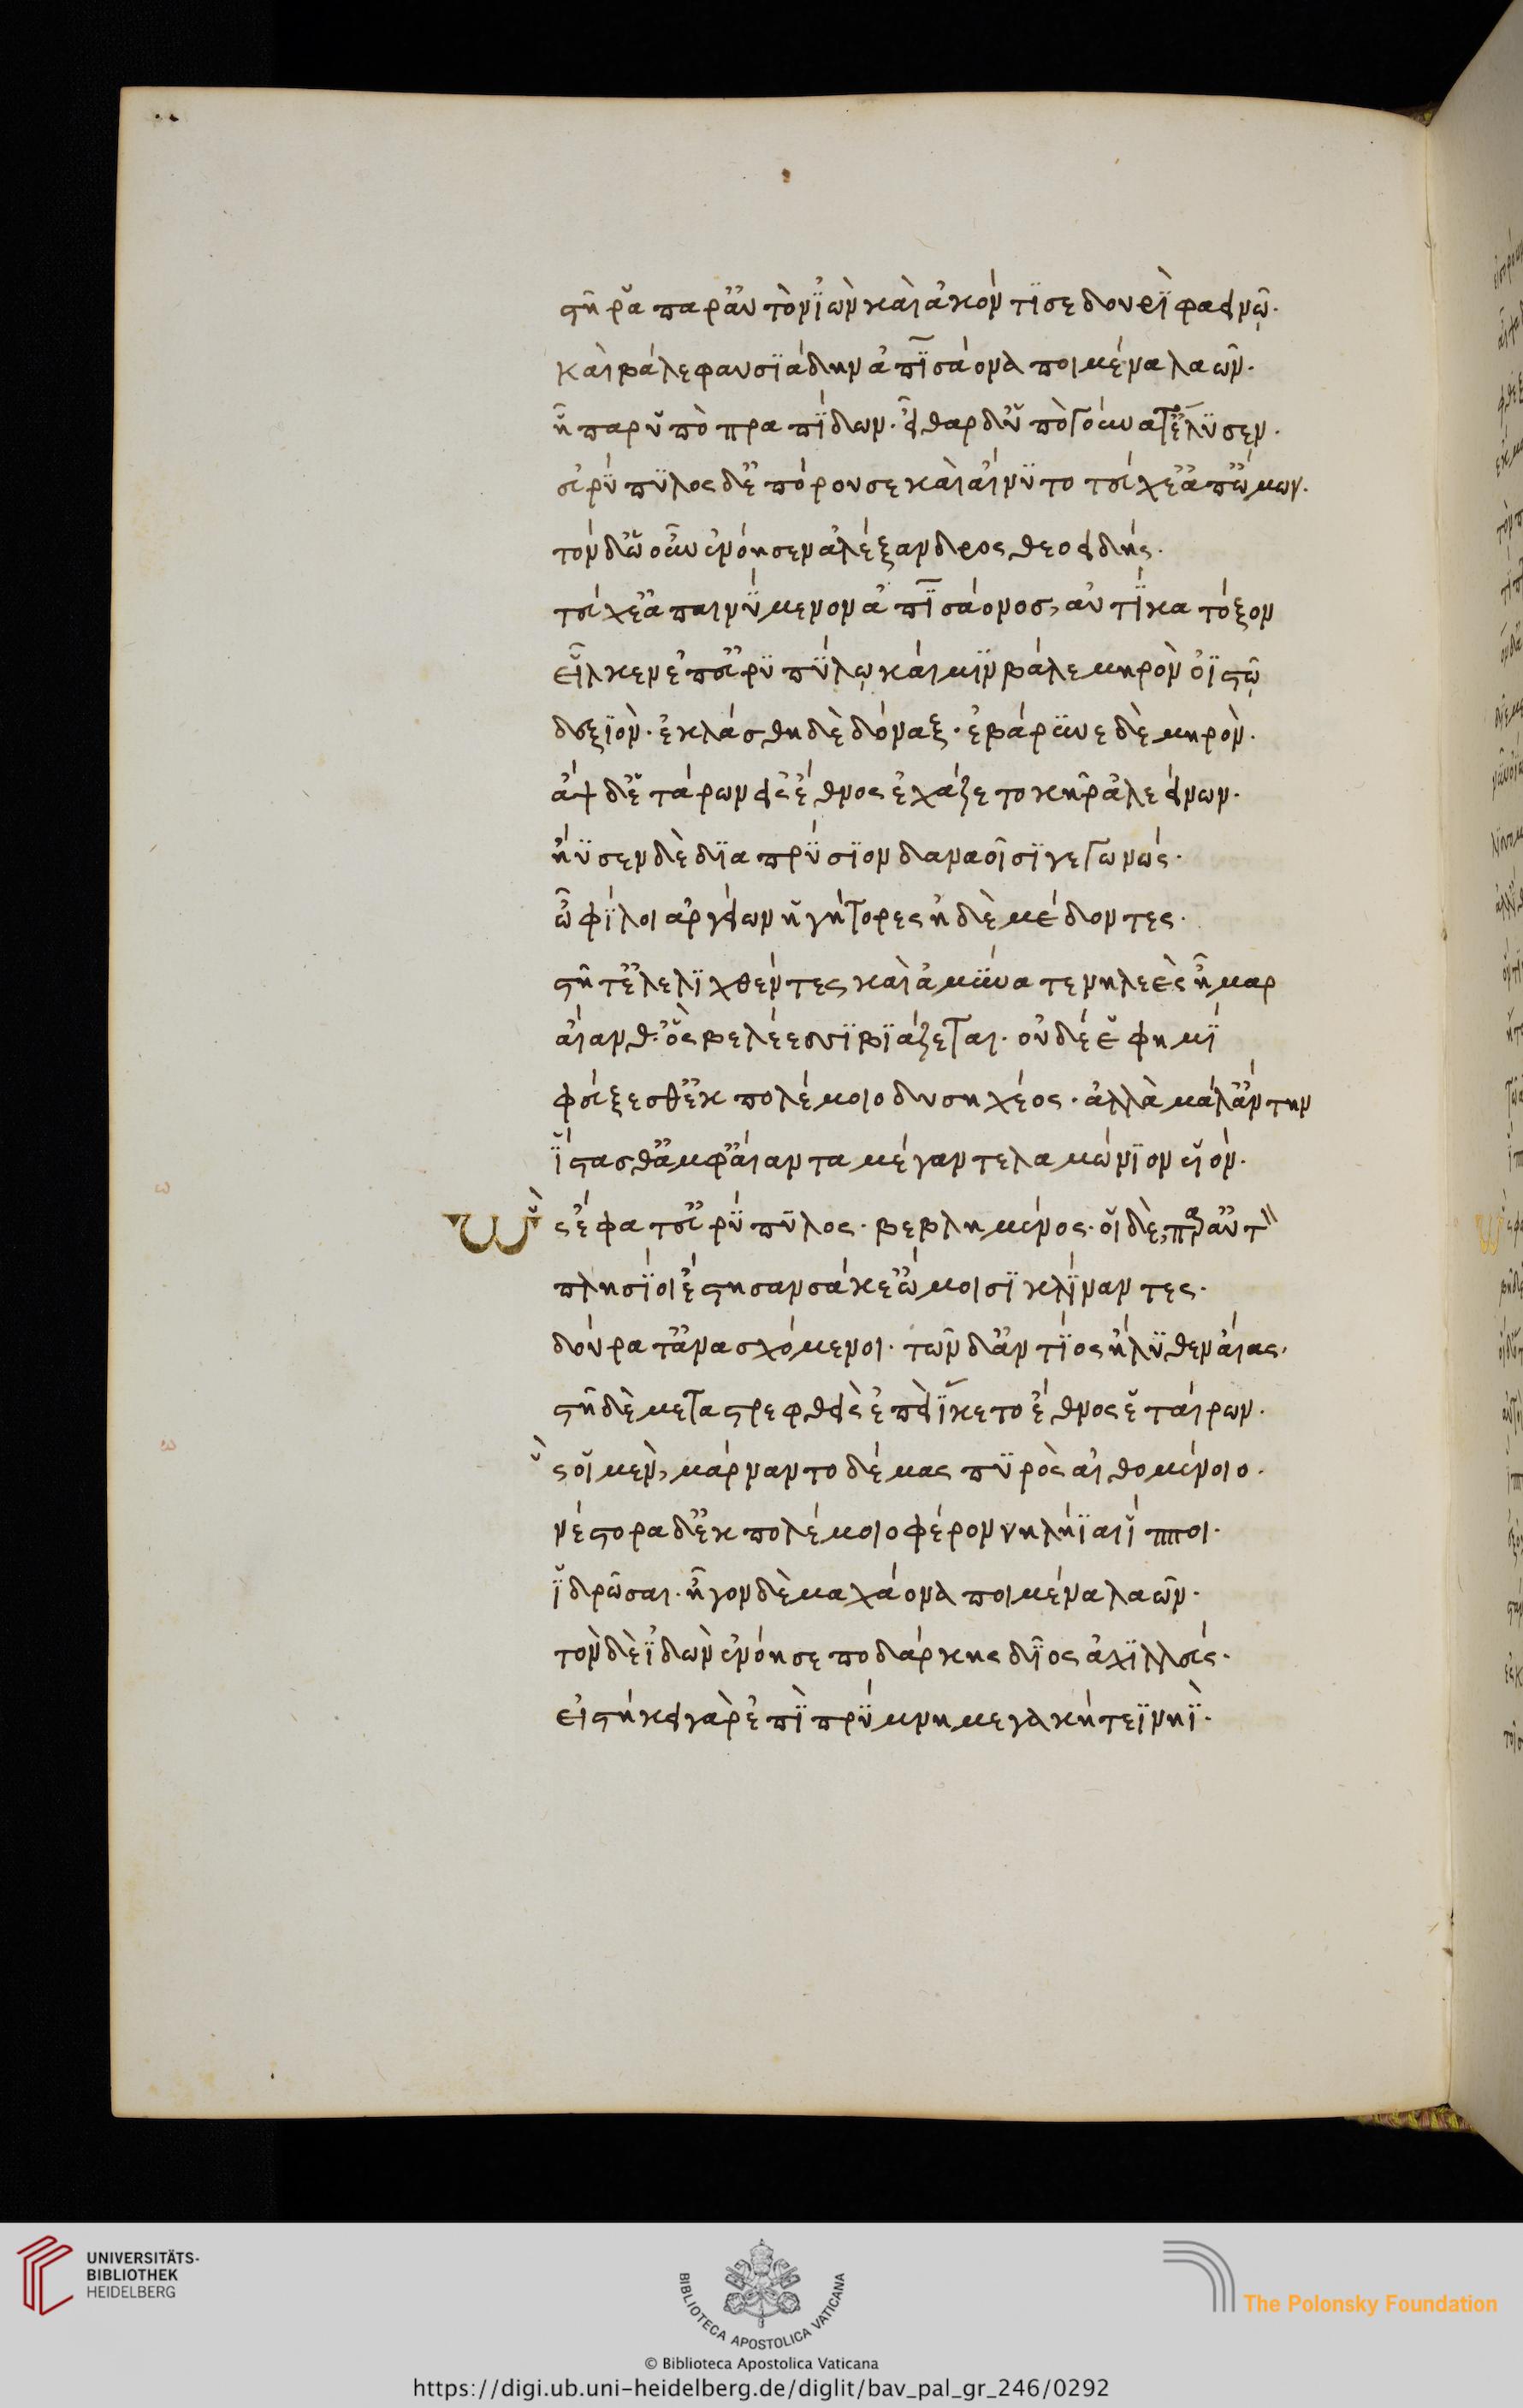 στῆ ῥα παρ' αὐτὸν ἰὼν καὶ ἀκόντισε δουρὶ φαεινῶ·
καὶ βάλε φαυσιάδην ἀπισάονα ποιμένα λαῶν·
ἧπαρ ὑπὸ πραπίδων· εἶθαρ δ' ὑπὸ γούνατ' ἔλυσεν·
εὐρύπυλος δ' ἐπόρουσε καὶ αἴνυτο τεύχε' ἀπ' ὤμων·
τὸν δ' ὡς οὖν ἐνόησεν ἀλέξανδρος θεοειδής·
τεύχε' ἀπαινύμενον ἀπισάονος, αὐτίκα τόξον
εἷλκεν ἐπ' εὐρυπύλῳ καί μιν βάλε μηρὸν ὀϊστῷ
δεξιόν· ἐκλάσθη δὲ δόναξ· ἐβάρυνε δὲ μηρόν·
ἂψ δ' ἑτάρων εἰς ἔθνος ἐχάζετο κῆρ' ἀλεείνων·
ἤϋσεν δὲ διαπρύσιον δαναοῖσι γεγωνώς·
ὦ φίλοι ἀργείων ἡγήτορες ἠδὲ μέδοντες·
στῆτ' ἐλελιχθέντες καὶ ἀμύνατε νηλεὲς ἦμαρ
αἴανθ' ὃς βελέεσσι βιάζεται· οὐδέ ἕ φημὶ
φεύξεσθ' ἐκ πολέμοιο δυσηχέος· ἀλλὰ μάλ' ἄντην
ἵστασθ' ἀμφ' αἴαντα μέγαν τελαμώνιον υἱόν·
Ὣς ἔφατ' εὐρύπυλος· βεβλημένος· οἱ δὲ, παρ' αὐτ
πλησίοι ἔστησαν σάκε' ὤμοισι κλίναντες·
δούρατ' ἀνασχόμενοι· τῶν δ' ἀντίος ἤλυθεν αἴας·
στῆ δὲ μεταστρεφθεὶς ἐπεὶ ἵκετο ἔθνος ἑταίρων·
ὣς οἱ μὲν, μάρναντο δέμας πυρὸς αἰθομένοιο·
νέστορα δ' ἐκ πολέμοιο φέρον νηλήϊαι ἵπποι·
ἱδρῶσαι· ἦγον δὲ μαχάονα ποιμένα λαῶν·
τὸν δὲ ἰδὼν ἐνόησε ποδάρκης δῖος ἀχιλλεύς·
εἱστήκει γὰρ ἐπὶ πρύμνη μεγακήτεϊ νηΐ·
UNIVERSITÄTS-
BIBLIOTHEK
HEIDELBERG
BIBLIOTECA APOSTOLICA VATICANA
The Polonsky Foundation
© Biblioteca Apostolica Vaticana
https://digi.ub.uni-heidelberg.de/diglit/bav_pal_gr_246/0292